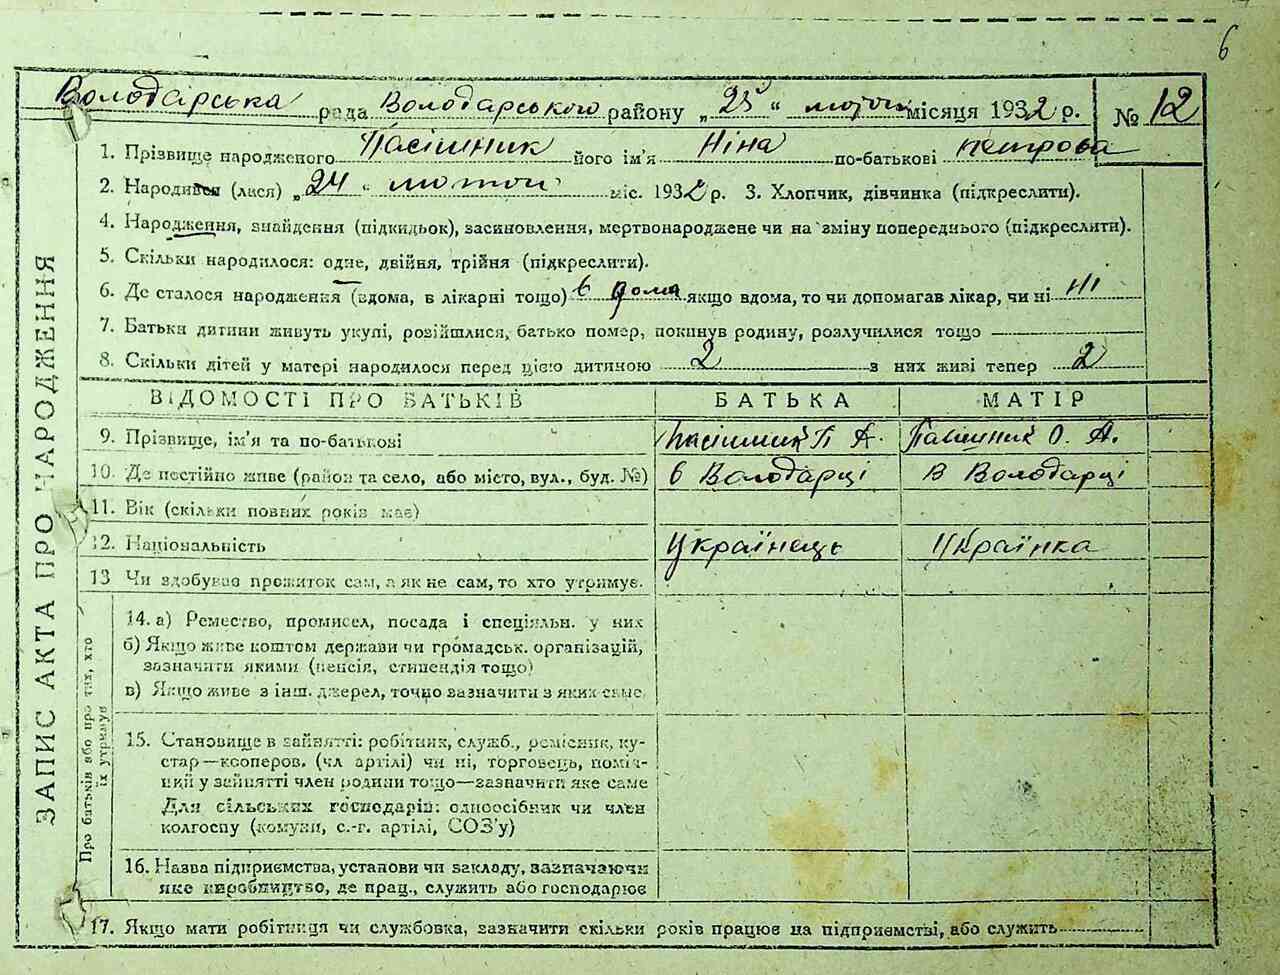 6
Володарська рада Володарського району „25“ лютого місяця 1932 р. № 12
1. Прізвище народженого Пасішник його ім'я Ніна по-батькові петрова
2. Народився (лася) „24“ лютого міс. 1932 р. 3. Хлопчик, дівчинка (підкреслити).
4. Народження, знайдення (підкидьок), засиновлення, мертвонароджене чи на зміну попереднього (підкреслити).
5. Скільки народилося: одне, двійня, трійня (підкреслити).
6. Де сталося народження (вдома, в лікарні тощо) в дома якщо вдома, то чи допомагав лікар, чи ні ні
7. Батьки дитини живуть укупі, розійшлися, батько помер, покинув родину, розлучилися тощо
8. Скільки дітей у матері народилося перед цією дитиною 2 з них живі тепер 2
ВІДОМОСТІ ПРО БАТЬКІВ БАТЬКА МАТІР
9. Прізвище, ім'я та по-батькові Пасішник П. А. Пасішник О. А.
10. Де постійно живе (район та село, або місто, вул., буд. №) в Володарці в Володарці
11. Вік (скільки повних років має)
12. Національність Українець Українка
13 Чи здобував прожиток сам, а як не сам, то хто утримує.
14. а) Ремество, промисел, посада і спеціяльн. у них
б) Якщо живе коштом держави чи громадськ. організацій,
зазначити якими (пенсія, стипендія тощо)
в) Якщо живе з інш. джерел, точно зазначити з яких саме.
15. Становище в зайнятті: робітник, служб., ремісник, ку-
стар—кооперов. (чл артілі) чи ні, торговець, поміч-
ний у зайнятті член родини тощо—зазначити яке саме
Для сільських господарів: одноосібник чи член
колгоспу (комуни, с.-г. артілі, СОЗ'у)
16. Назва підприємства, установи чи закладу, зазначаючи
яке виробництво, де прац., служить або господарює
17. Якщо мати робітниця чи службовка, зазначити скільки років працює на підприємстві, або служить
ЗАПИС АКТА ПРО НАРОДЖЕННЯ
Про батьків або про тих, хто
їх утримув